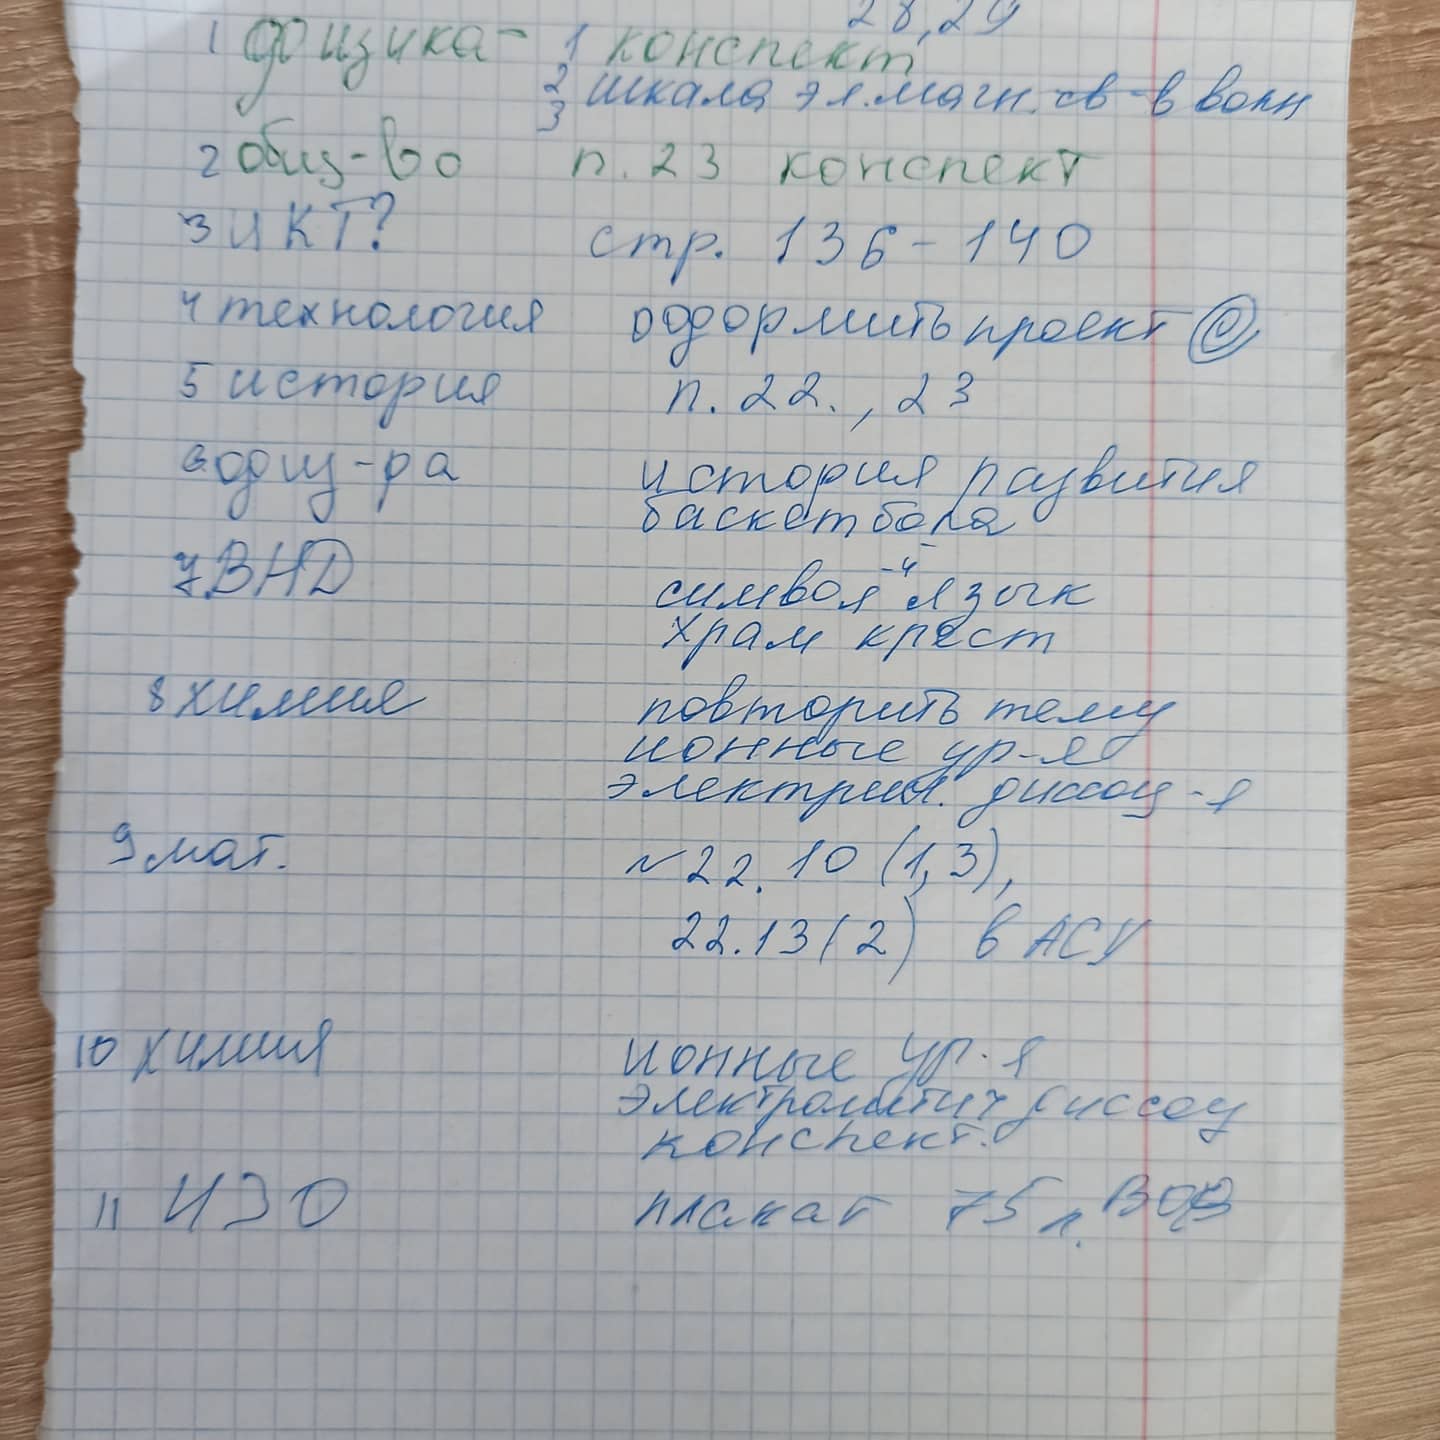 28,29
1 физика - 1 конспект
2 шкала эл.магн. св-в волн
3
2 общ-во п. 23 конспект
3 ИКТ? стр. 136-140
4 технология оформить проект
5 история п. 22., 23
6 физ-ра история развития
баскетбола
7 ВНД символ язык
храм крест
8 химия повторить тему
ионные ур-я
диссоц-я
9 мат. №22.10 (1,3),
22.13(2) в АСУ
10 химия ионные ур-я
электролитич диссоц
конспект.
11 ИЗО плакат 75 л. ВОВ